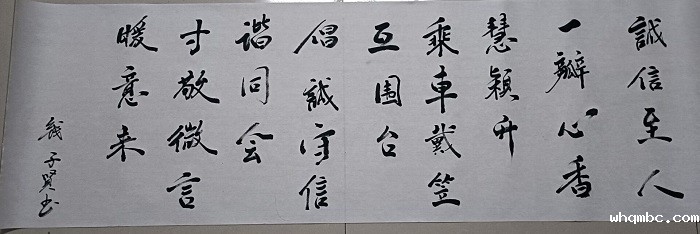 誠信至人
一瓣心香
慧穎升
乘車戴笠
互圍台
倡誠守信
谐同会
寸敬微言
暖意来
钱子贤书
whqmbc.com